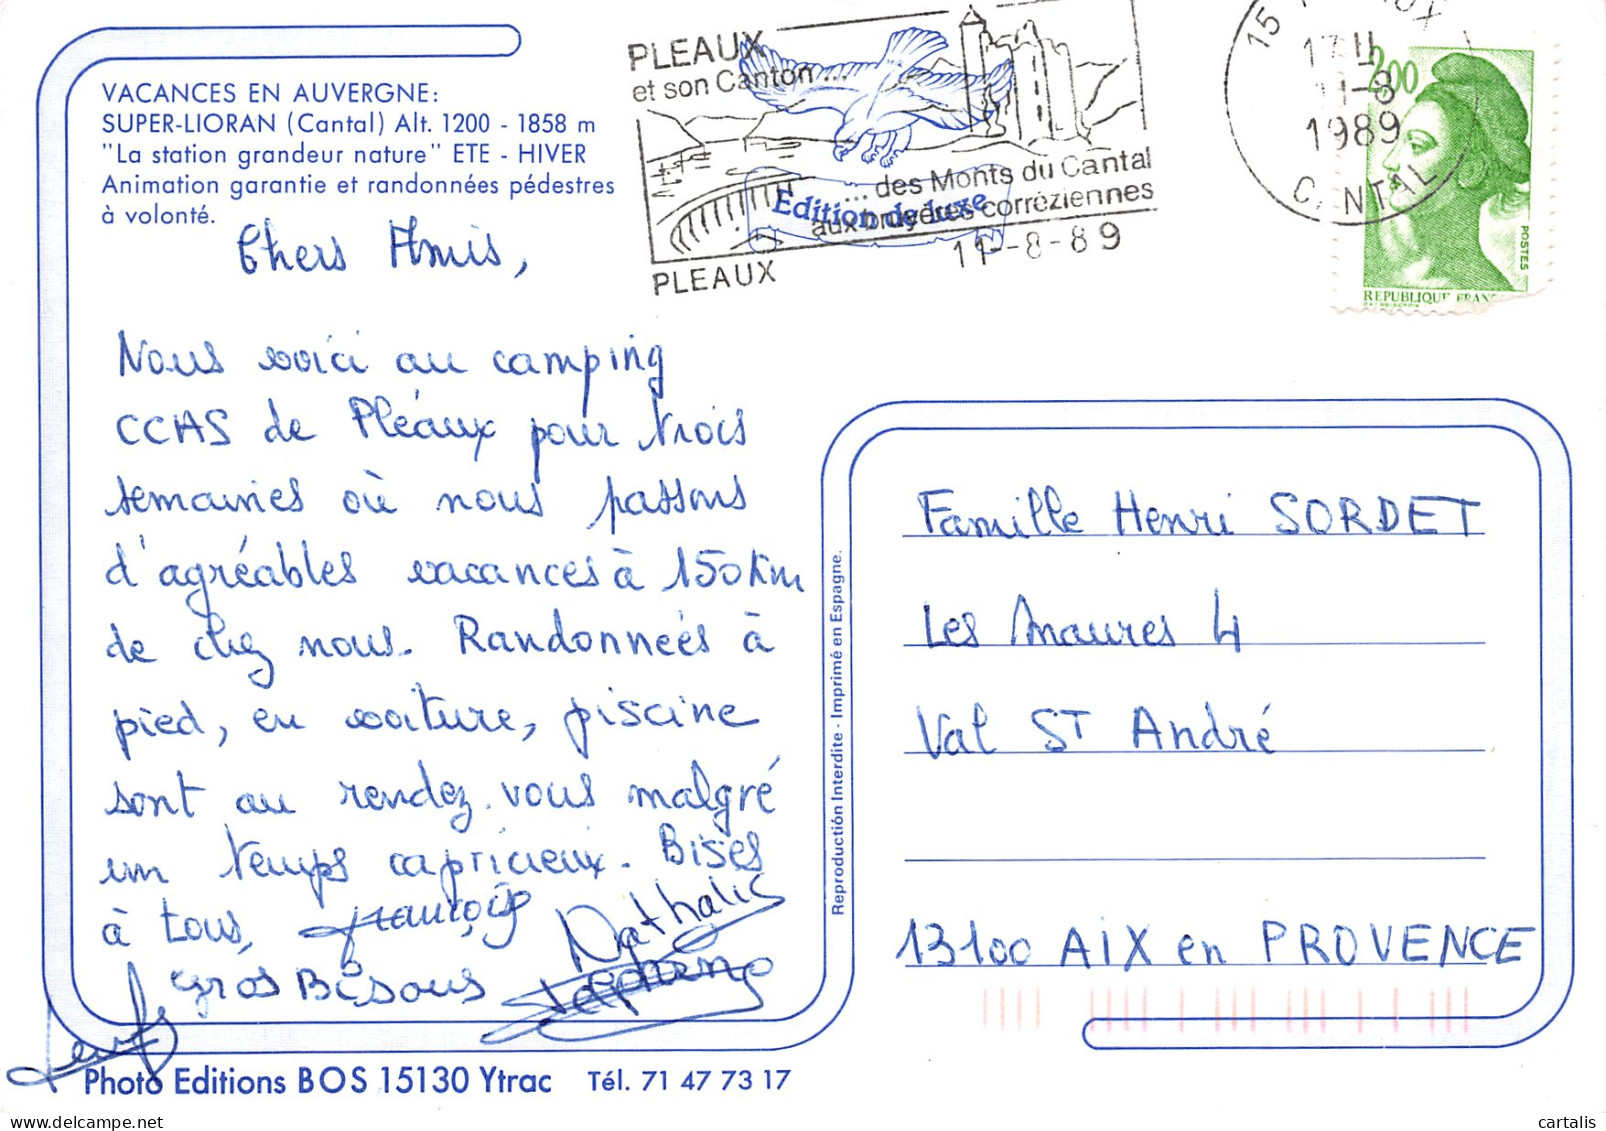 VACANCES EN AUVERGNE:
SUPER-LIORAN (Cantal) Alt. 1200 - 1858 m
"La station grandeur nature" ETE - HIVER
Animation garantie et randonnées pédestres
à volonté.
PLEAUX
et son Canton ...
... des Monts du Cantal
aux bruyères corréziennes
Edition de luxe
PLEAUX
11-8-89
15
17 H
11-8
1989
CANTAL
2,00
POSTES
REPUBLIQUE FRANC
Chers Amis,
Nous voici au camping
CCAS de Pléaux pour trois
semaines où nous passons
d'agréables vacances à 150 Km
de chez nous. Randonneés à
pied, en voiture, piscine
sont au rendez-vous malgré
un temps capricieux. Bises
à tous, françois Nathalie
gros Bisous
Famille Henri SORDET
Les Maures 4
Val ST André
13100 AIX en PROVENCE
Reproduction Interdite - Imprimé en Espagne.
Photo Editions BOS 15130 Ytrac Tél. 71 47 73 17
cartalis